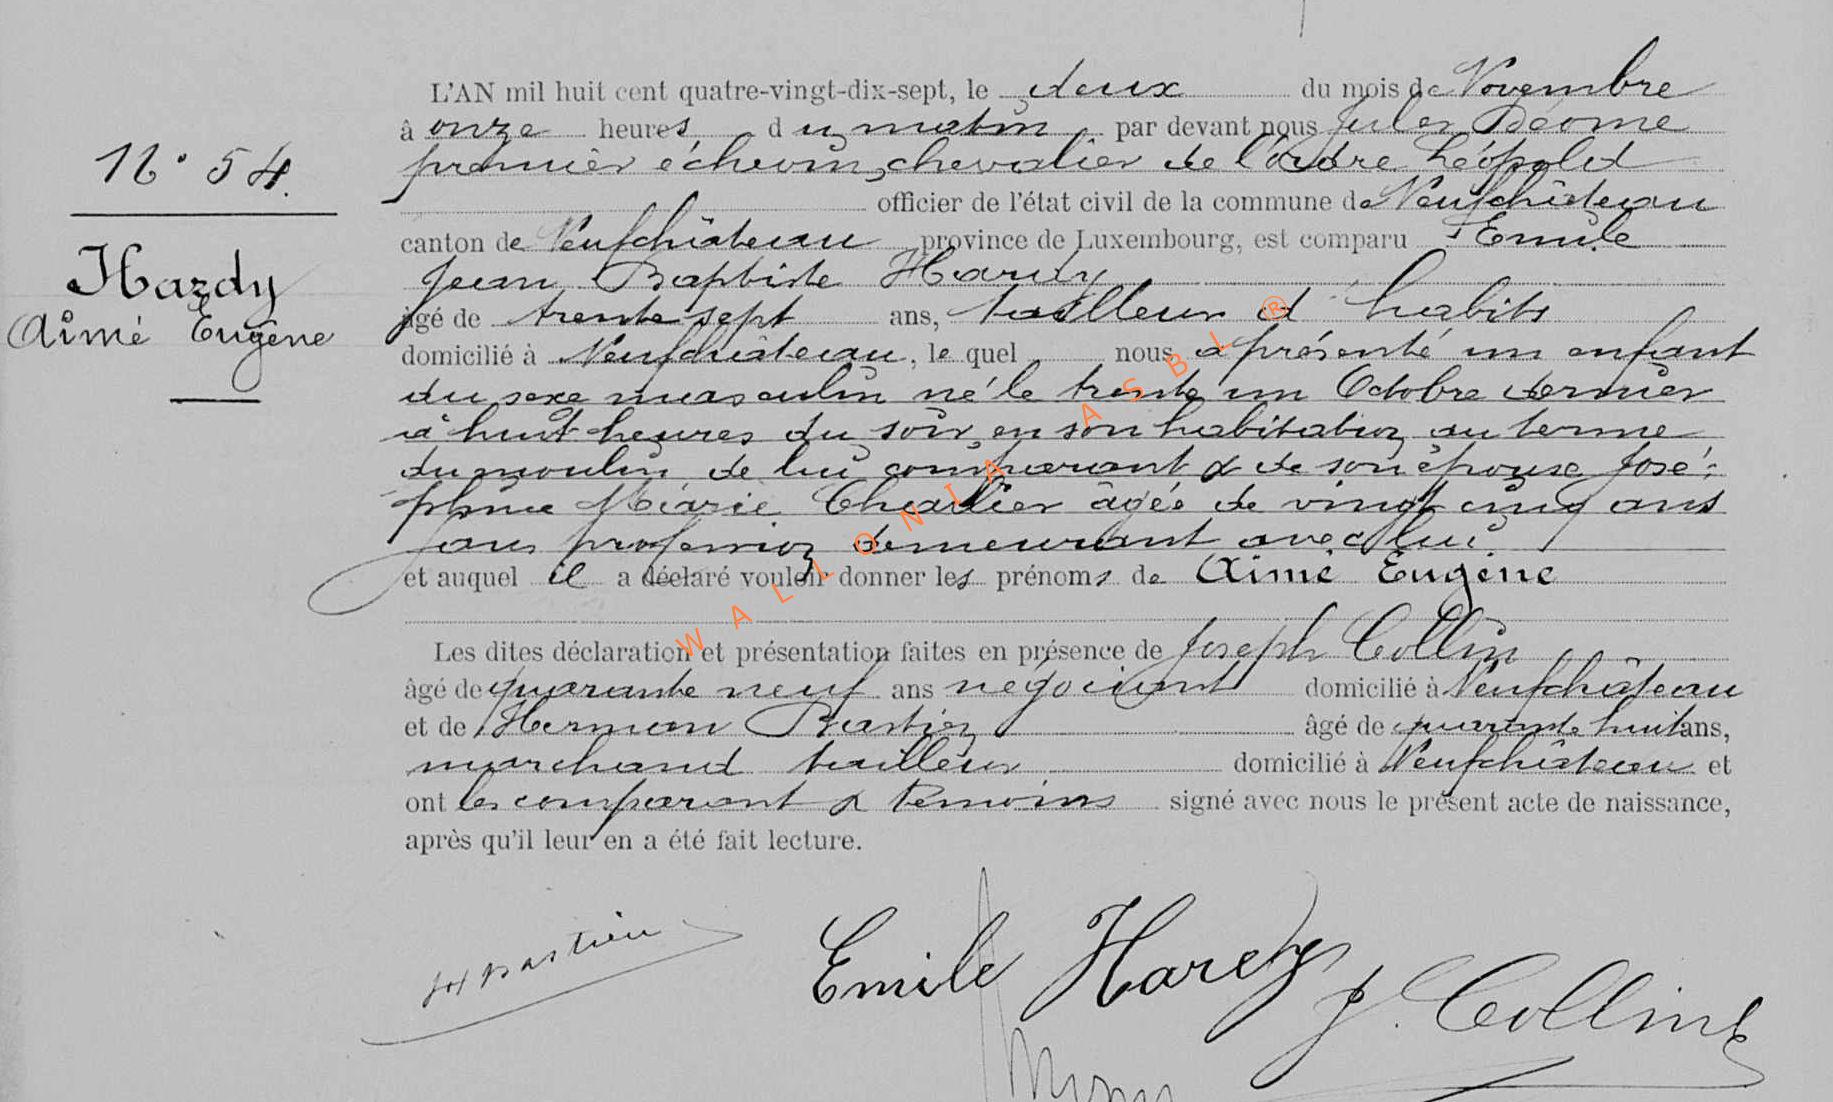 L'AN mil huit cent quatre-vingt-dix-sept, le deux du mois de Novembre
à onze heures du matin par devant nous Jules Déome
premier échevin, chevalier de l'ordre Léopold
officier de l'état civil de la commune de Neufchâteau
canton de Neufchâteau province de Luxembourg, est comparu Emile
Jean Baptiste Hardy
âgé de trente sept ans, tailleur d'habits
domicilié à Neufchâteau, le quel nous a présenté un enfant
du sexe masculin né le trente un Octobre dernier
à huit heures du soir, en son habitation au terme
du moulin de lui comparant & de son épouse José-
phine Marie Chevalier âgée de vingt cinq ans
sans profession demeurant avec lui.
et auquel il a déclaré vouloir donner les prénoms de Aimé Eugène
Les dites déclaration et présentation faites en présence de Joseph Collin
âgé de quarante neuf ans négociant domicilié à Neufchâteau
et de Herman Bastien âgé de quarante huit ans,
marchand tailleur domicilié à Neufchâteau et
ont les comparant & témoins signé avec nous le présent acte de naissance,
après qu'il leur en a été fait lecture.
N° 54.
Hardy
Aimé Eugène
H Bastien
Emile Hardy
J. Collin
WALLONIA ASBL ®